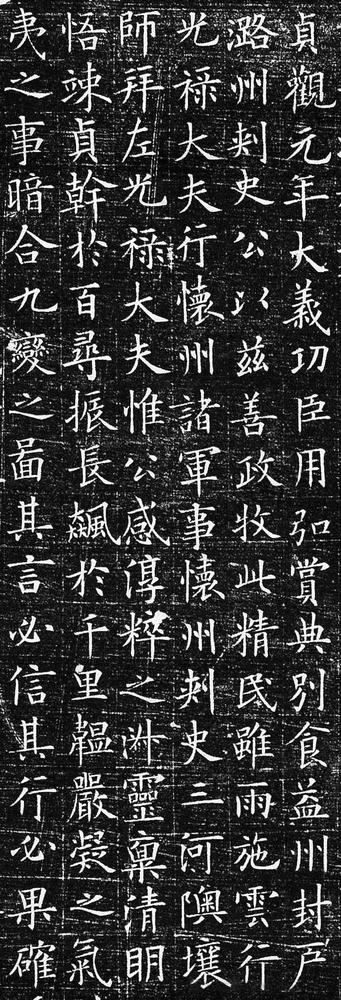 貞觀元年大義功臣用弘賞典別食益州封戸
潞州刾史公以兹善政牧此精民雖雨施雲行
光禄大夫行懷州諸軍事懷州刾史三河隩壤
師拜左光禄大夫惟公感淳粹之淋靈稟清明
悟竦貞幹於百尋振長飆於千里韞嚴凝之氣
夷之事暗合九變之啚其言必信其行必果確